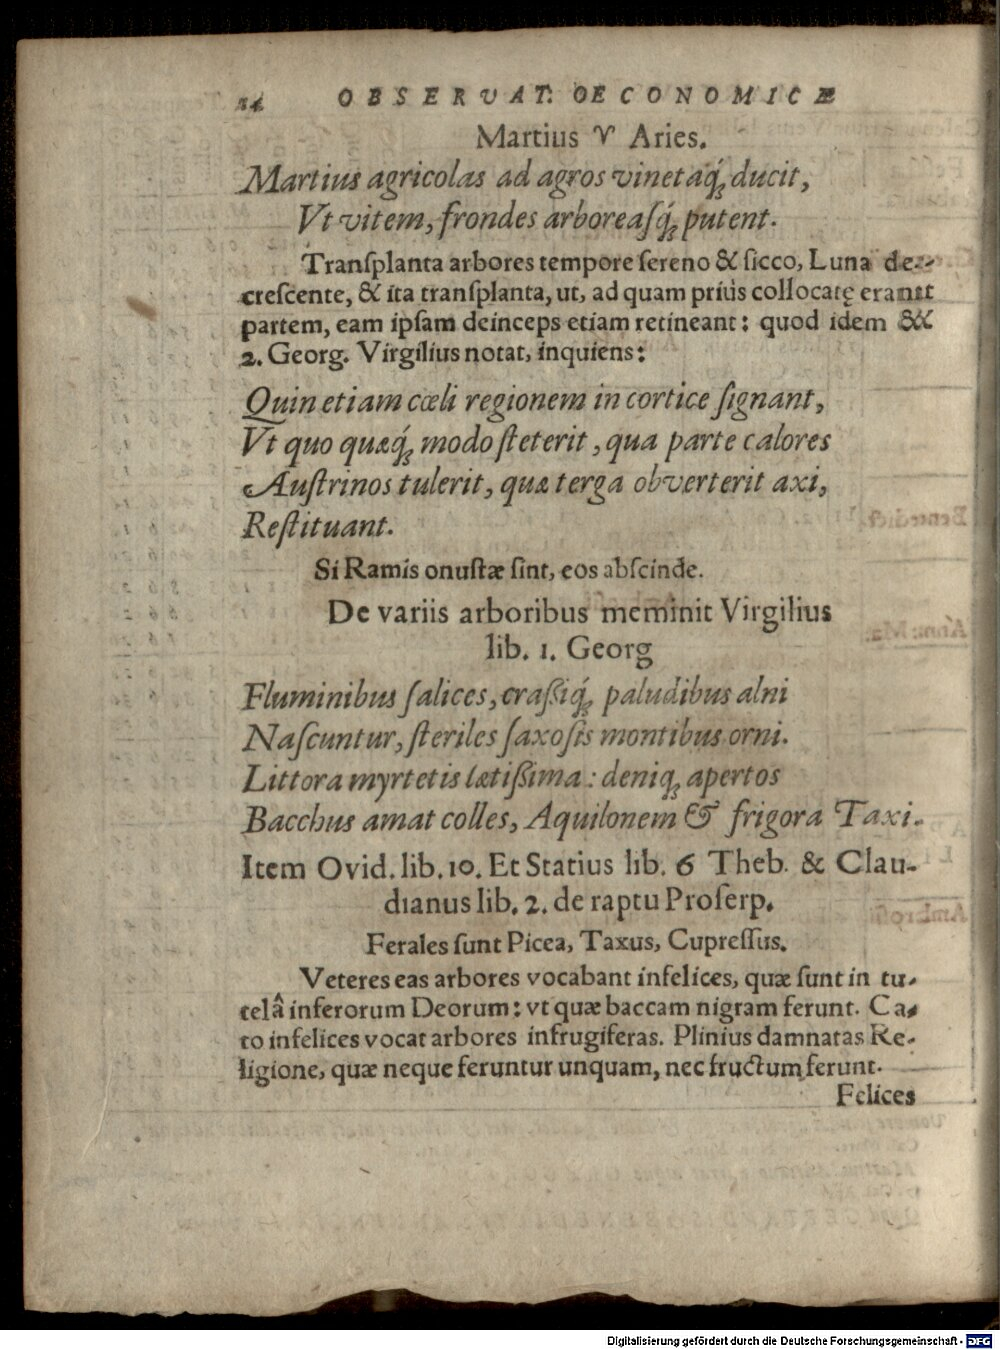 24 OBSERVAT. OECONOMICÆ
Martius ♈ Aries.
Martius agricolas ad agros vinetaq́; ducit,
Vt vitem, frondes arboreaſq́; putent.
Tranſplanta arbores tempore ſereno & ſicco, Luna de-
creſcente, & ita tranſplanta, ut, ad quam priùs collocatę erant
partem, eam ipſam deinceps etiam retineant: quod idem &
2. Georg. Virgilius notat, inquiens:
Quin etiam cœli regionem in cortice ſignant,
Vt quo quæq́; modo ſteterit, qua parte calores
Auſtrinos tulerit, quæ terga obverterit axi,
Reſtituant.
Si Ramis onuſtæ ſint, eos abſcinde.
De variis arboribus meminit Virgilius
lib. 1. Georg
Fluminibus ſalices, craßiq́; paludibus alni
Naſcuntur, ſteriles ſaxoſis montibus orni.
Littora myrtetis lætißima: deniq; apertos
Bacchus amat colles, Aquilonem & frigora Taxi.
Item Ovid. lib. 10. Et Statius lib. 6 Theb. & Clau-
dianus lib. 2. de raptu Proſerp.
Ferales ſunt Picea, Taxus, Cupreſſus.
Veteres eas arbores vocabant infelices, quæ ſunt in tu-
telâ inferorum Deorum: vt quæ baccam nigram ferunt. Ca-
to infelices vocat arbores infrugiferas. Plinius damnatas Re-
ligione, quæ neque feruntur unquam, nec fructum ferunt.
Felices
Digitalisierung gefördert durch die Deutsche Forschungsgemeinschaft - DFG